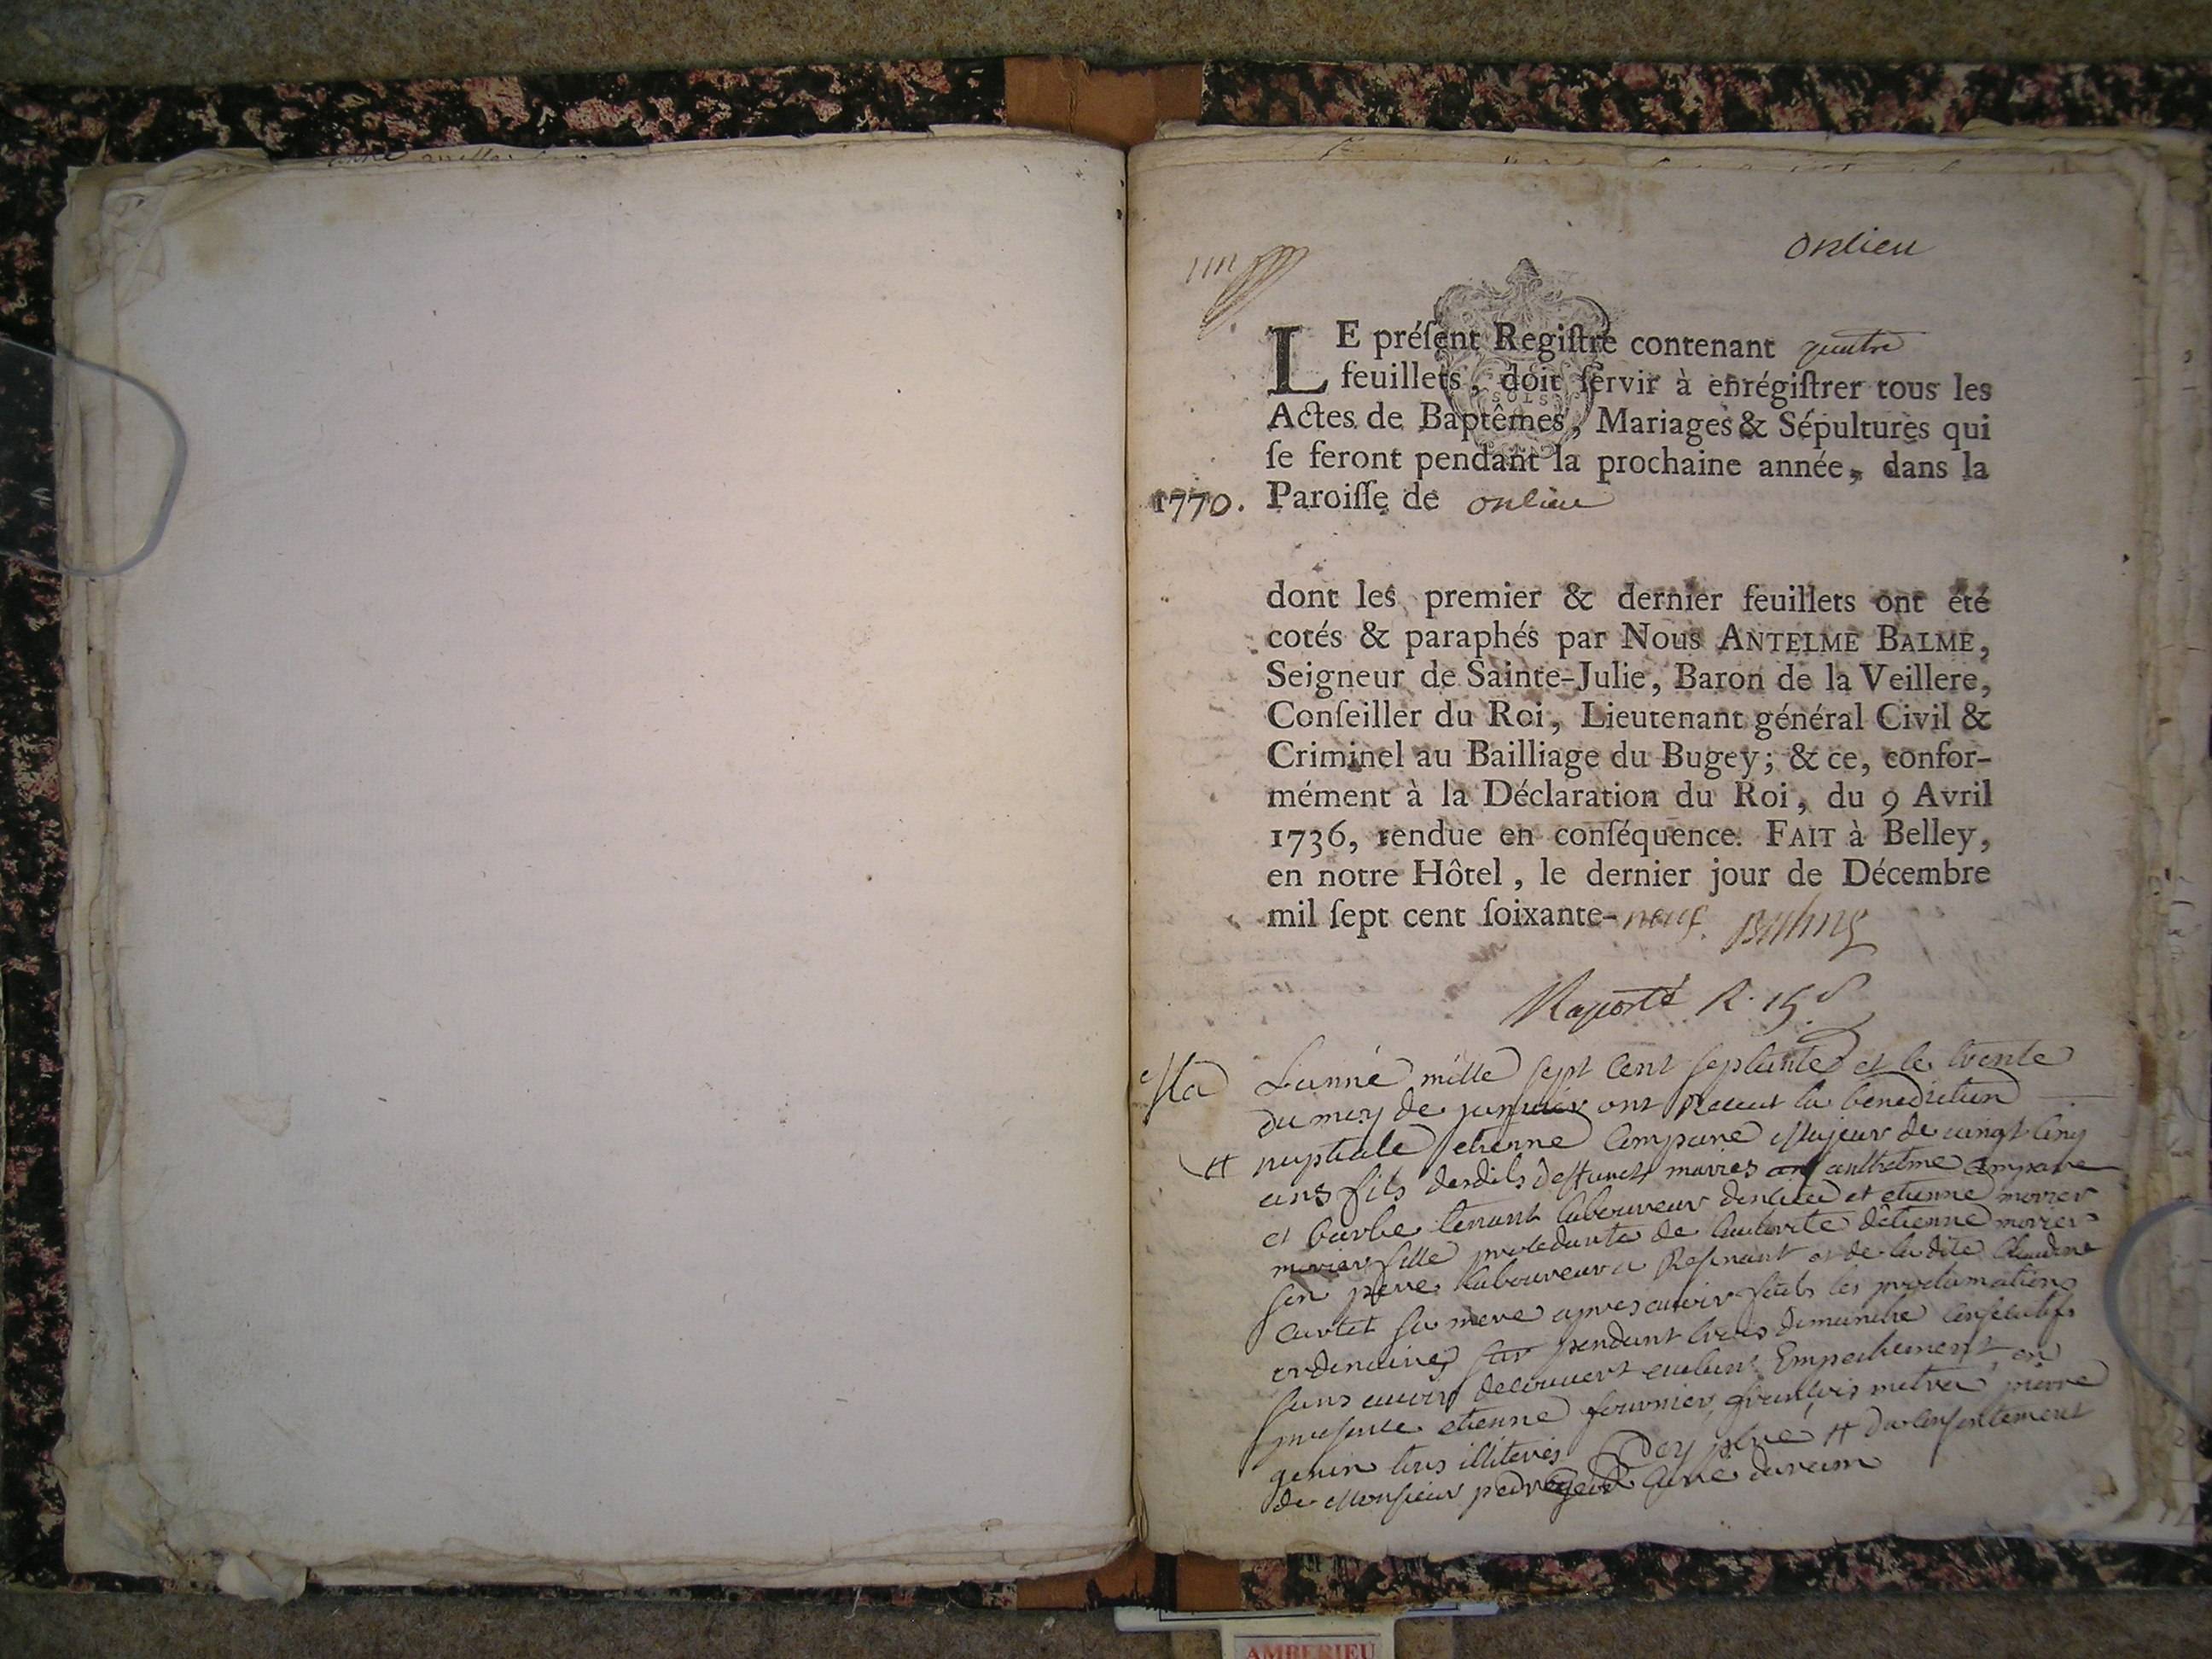 onlieu
LE préſent Regiſtre contenant quatre
feuillets, doit ſervir à enrégiſtrer tous les
SOLS
Actes de Baptêmes, Mariages & Sépultures qui
ſe feront pendant la prochaine année, dans la
1770. Paroiſſe de onlieu
dont les premier & dernier feuillets ont été
cotés & paraphés par Nous ANTELME BALME,
Seigneur de Sainte-Julie, Baron de la Veillere,
Conſeiller du Roi, Lieutenant général Civil &
Criminel au Bailliage du Bugey; & ce, confor-
mément à la Déclaration du Roi, du 9 Avril
1736, rendue en conſéquence. FAIT à Belley,
en notre Hôtel, le dernier jour de Décembre
mil ſept cent ſoixante-neuf. Balme
Raporté R. 15 s
Ma Lanné mille sept cent septante et le trente
du moy de janvier ont Receut la benediction
# nuptiale etienne Compare Majeur de vingt cinq
ans fils desdits deffunct mariés anthelme Compare
et barbe tenant laboureur donlieu et etienne morier
morier fille procedante de lautorite detienne morier
son pere laboureur a Resinant et de la dite Claudine
Curtet sa mere apres avoir faits les proclamations
ordinaires pendant trois dimanche consecutifs
sans avoir decouvert aucuns Empechement, en
presence etienne fournier, francois metra, pierre
genin tous illiterés # du consentement
de Monsieur cure